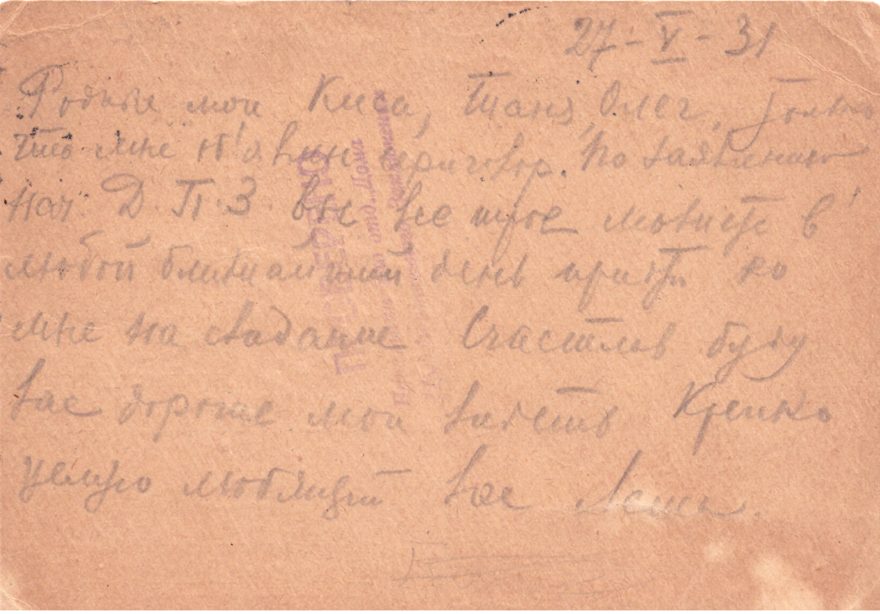 27-V-31
Родные мои Киса, Таня, Олег, только
что мне об'явили приговор. По заявлению
нач. Д.П.З. вы все трое можете в
любой ближайший день придти ко
мне на свидание Счастлив буду
вас дорогие мои видеть Крепко
целую любящий вас
ПРОВЕРЕНО